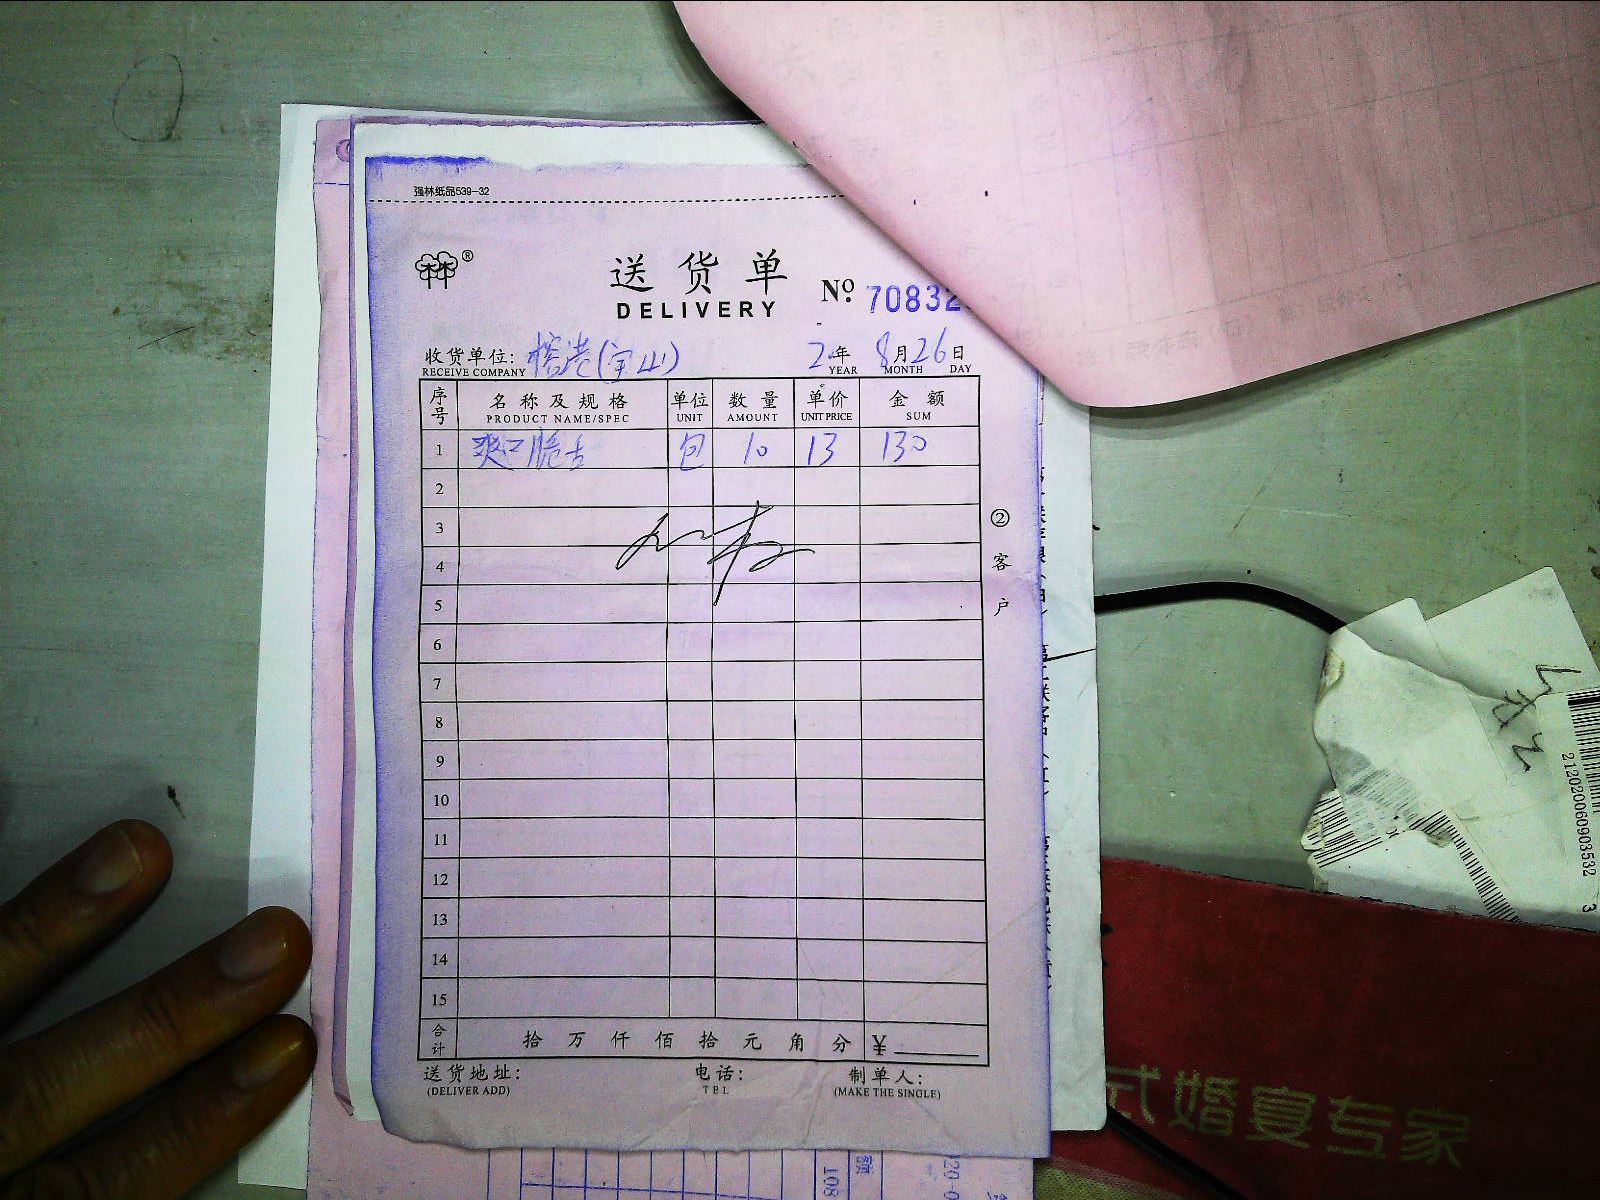 强林纸品539-32
送货单
DELIVERY
№ 70832
收货单位: 榕港(宝山) 2年 8月26日
RECEIVE COMPANY YEAR MONTH DAY
序号 名称及规格 单位 数量 单价 金额
PRODUCT NAME/SPEC UNIT AMOUNT UNIT PRICE SUM
1 爽口脆舌 包 10 13 130
2
3
4
5
6
7
8
9
10
11
12
13
14
15
②客户
合计 拾 万 仟 佰 拾 元 角 分 ¥
送货地址: 电话: 制单人:
(DELIVER ADD) TEL (MAKE THE SINGLE)
212020060903532 3
式婚宴专家
额
108